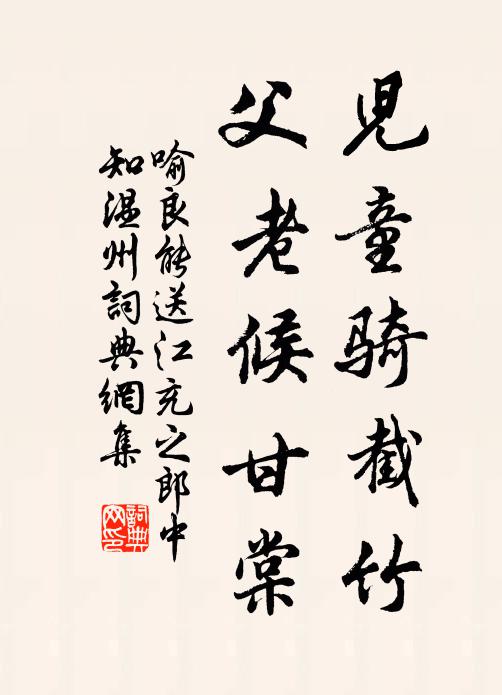 兒童騎截竹
父老候甘棠
喻良能送江充之郎中
知温州詞典網集
詞典網印